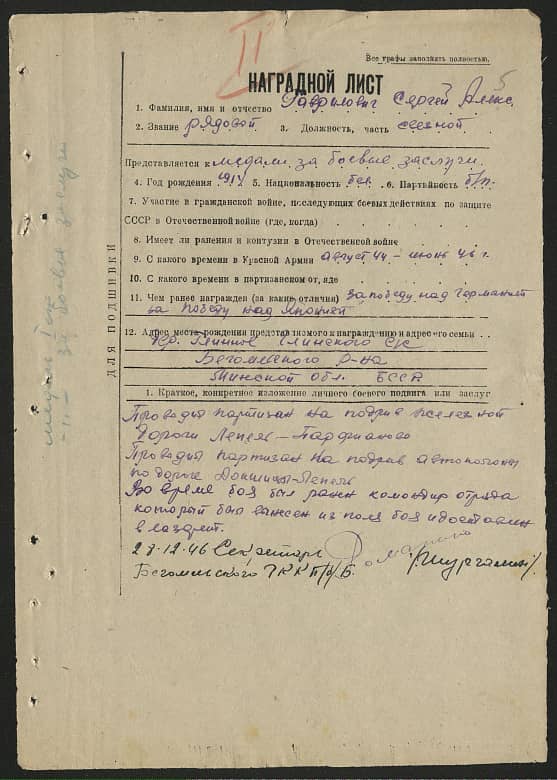 II
5
Все графы заполнять полностью.
НАГРАДНОЙ ЛИСТ
1. Фамилия, имя и отчество Гаврилович Сергей Алекс
2. Звание рядовой 3. Должность, часть связной
Представляется к медали за боевые заслуги
4. Год рождения 1914 5. Национальность бел. 6. Партийность б/п.
7. Участие в гражданской войне, последующих боевых действиях по защите
СССР в Отечественной войне (где, когда)
8. Имеет ли ранения и контузии в Отечественной войне
9. С какого времени в Красной Армии август 44 – июнь 46 г.
10. С какого времени в партизанском отряде
11. Чем ранее награжден (за какие отличия) За победу над Германией
за победу над Японией
12. Адрес место рождения представляемого к награждению и адрес его семьи
Глинского с/с
Бегомльского р-на
Минской обл. БССР
1. Краткое, конкретное изложение личного боевого подвига или заслуг
Проводил партизан на подрыв железной
дороги Лепель – Парфианово
Проводил партизан на подрыв автоколонны
по дороге Докшицы-Лепель
Во время боя был ранен командир отряда
который был вынесен из поля боя и доставлен
в лазарет.
28.12.46 Секретарь
Бегомльского РК КП/б/Б.
ДЛЯ ПОДШИВКИ
за боевые заслуги